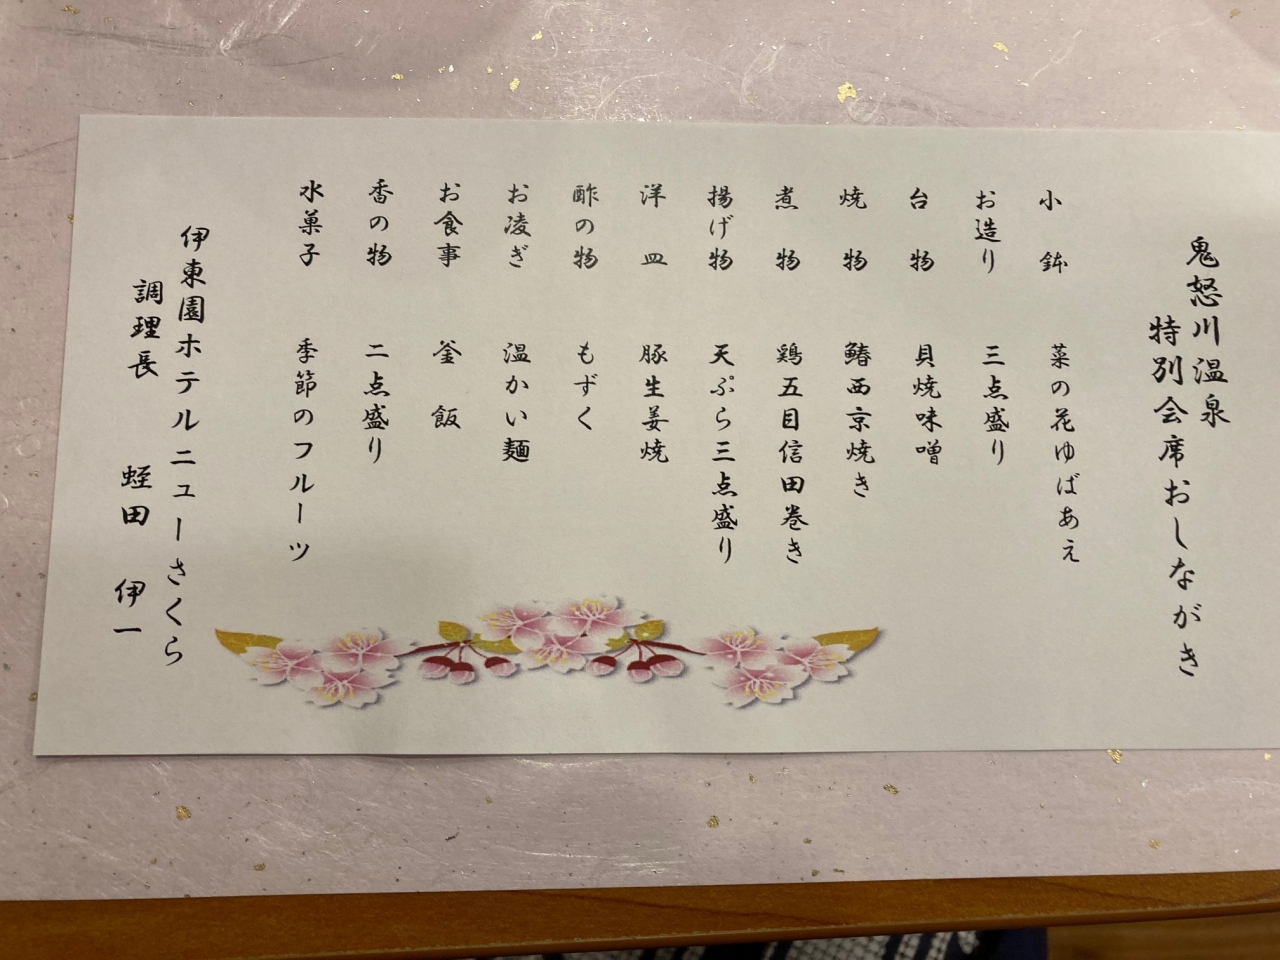 鬼怒川温泉
特別会席おしながき
小鉢 菜の花ゆばあえ
お造り 三点盛り
台物 貝焼味噌
焼物 鰆西京焼き
煮物 鶏五目信田巻き
揚げ物 天ぷら三点盛り
洋皿 豚生姜焼
酢の物 もずく
お凌ぎ 温かい麺
お食事 釜飯
香の物 二点盛り
水菓子 季節のフルーツ
伊東園ホテルニューさくら
調理長 蛭田 伊一